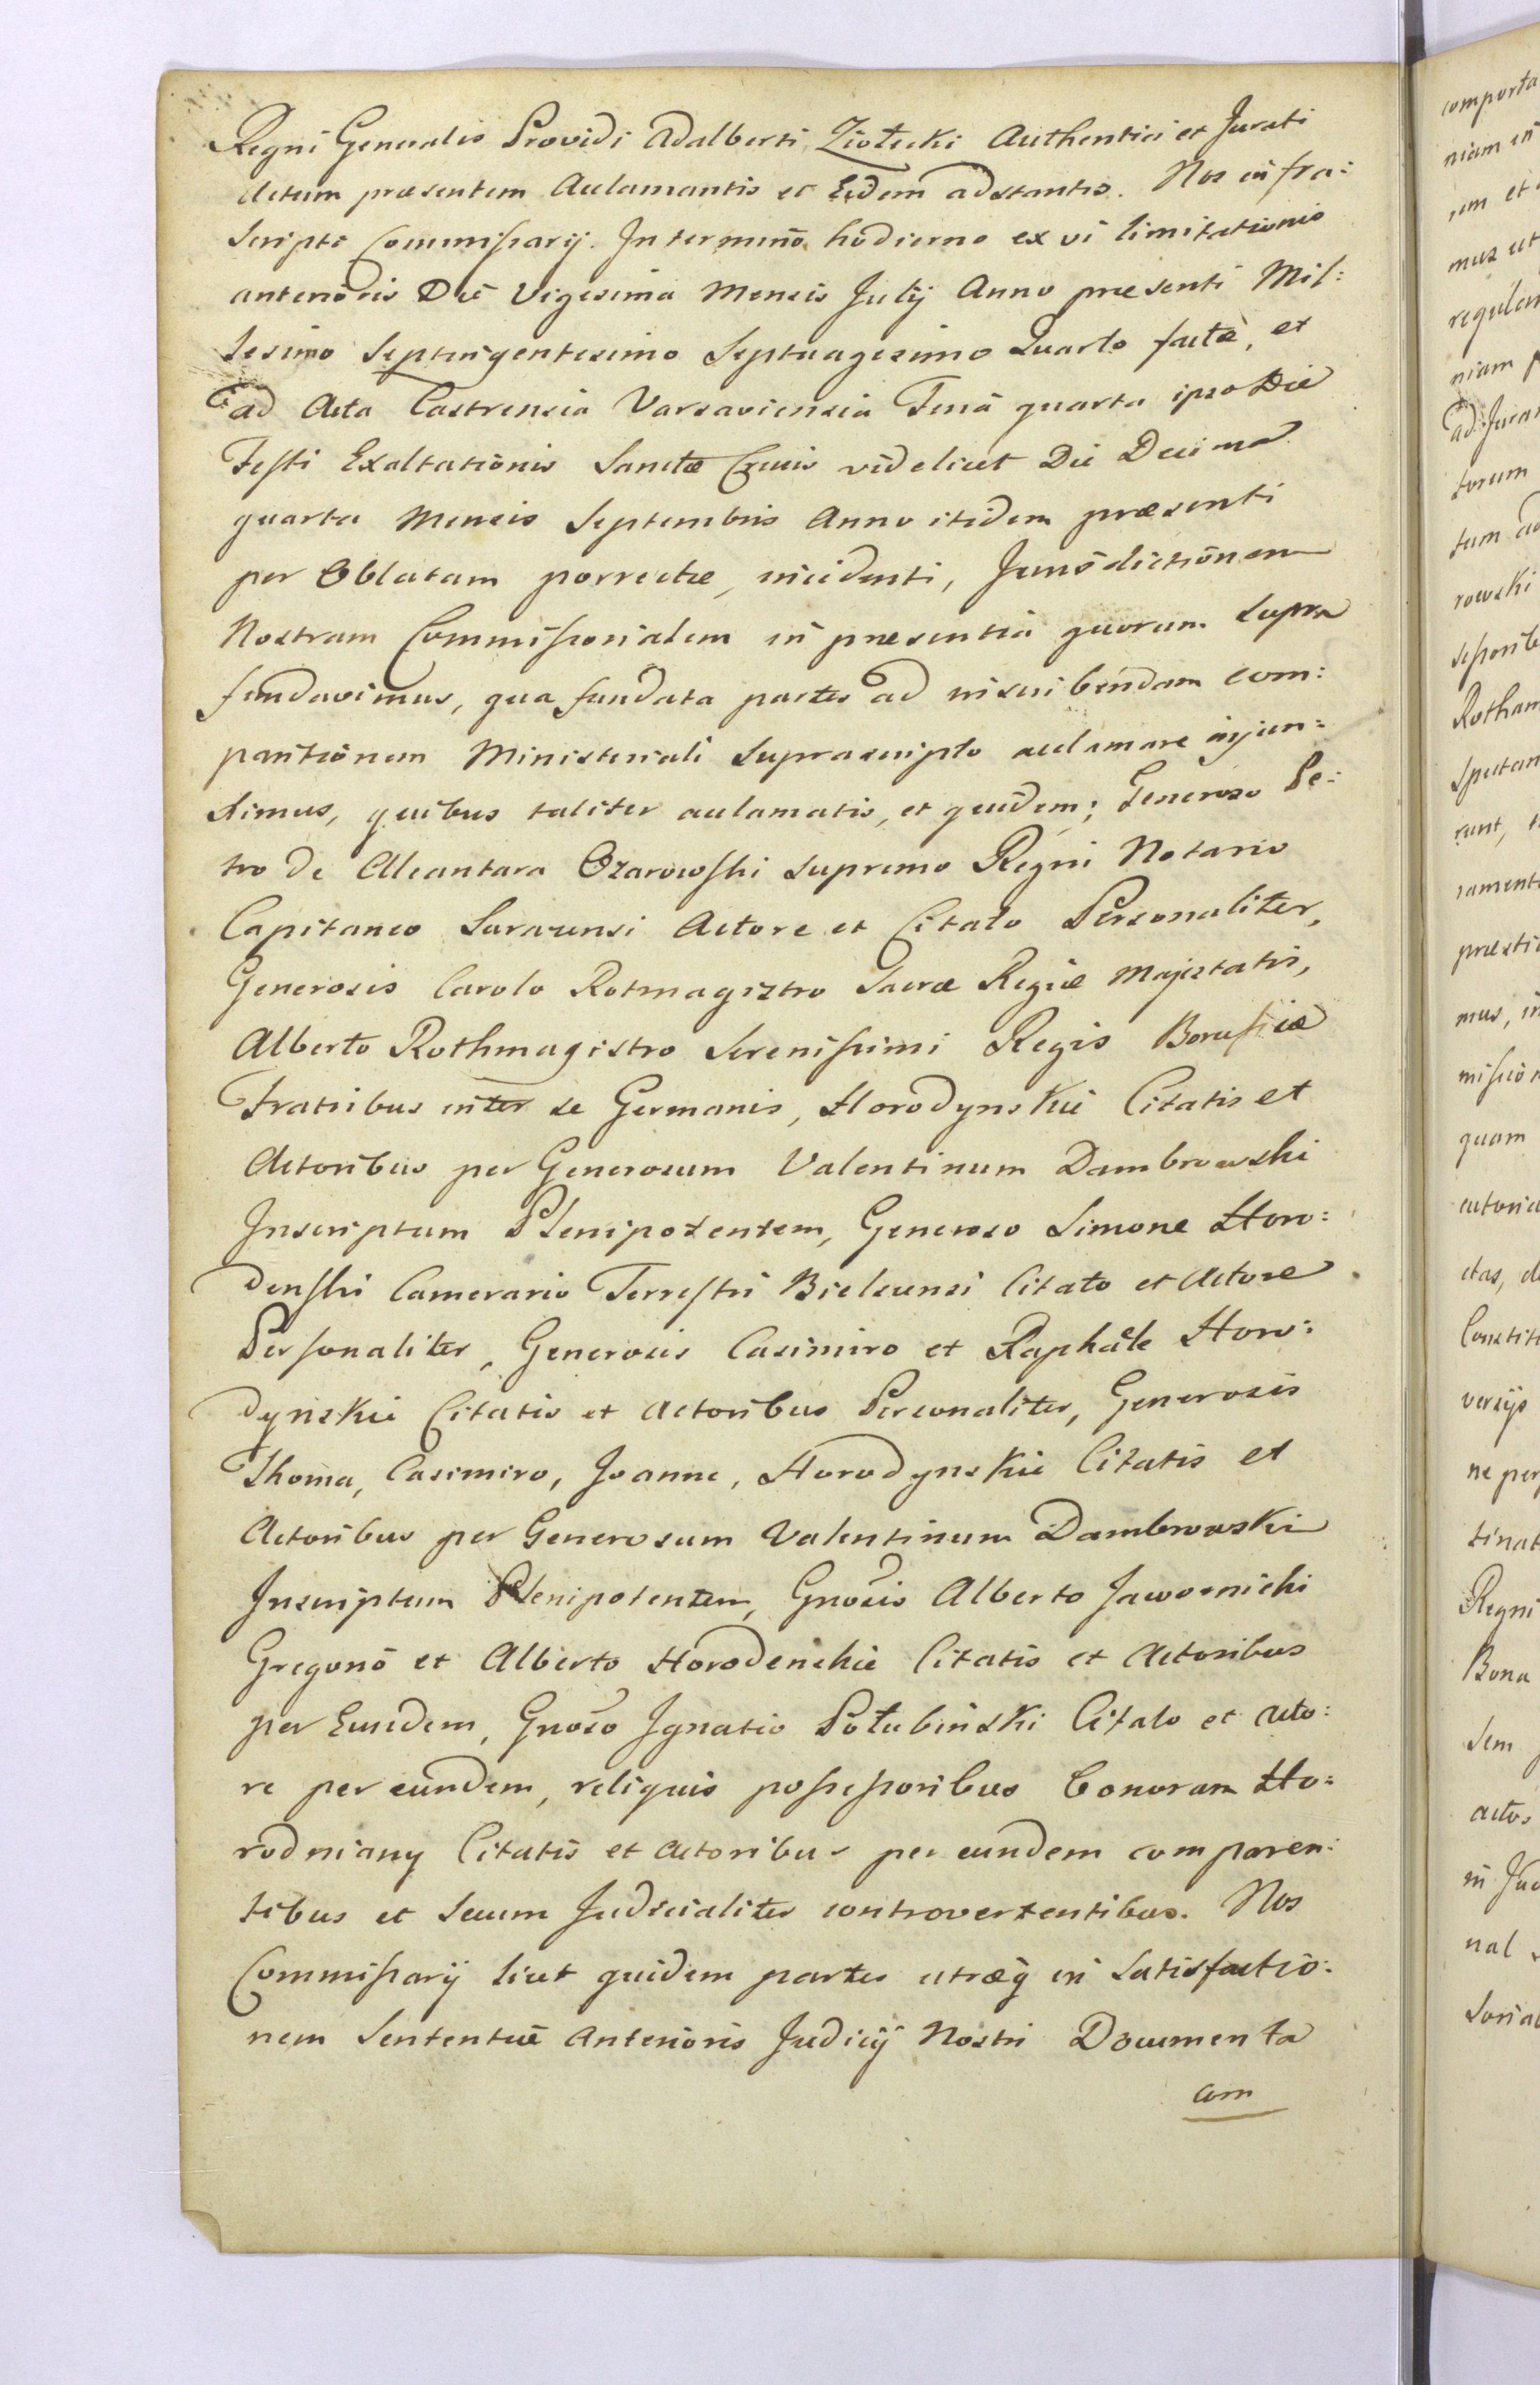 Regni Generalis Providi Adalberti Ziołecki Authentici et Jurati
Actum præsentem Acclamantis et Eidem adstantis. Nos infra:
Scripti Commissarij. In termino hodierno ex vi limitationis
anterioris Die Vigesima Mensis Julij Anno præsenti Mil:
lesimo Septingentesimo Septuagesimo Quarto factæ, et
ad Acta Castrensia Varsaviensia Feria quarta ipso Die
Festi Exaltationis Sanctæ Crucis videlicet Die Decima
quarta Mensis Septembris Anno itidem præsenti
per Oblatam porrectæ, incidenti, Jurisdictionem
Nostram Commissorialem in præsentia quorum supra
fundavimus, qua fundata partes ad inscribendam com:
paritionem Ministeriali suprascripto acclamare injun:
ximus, quibus taliter acclamatis, et quidem; Generoso Pe:
tro de Alcantara Ozarowski Supremo Regni Notario
Capitaneo Saracensi Actore et Citato Personaliter,
Generosis Carolo Rotmagistro Sacræ Regiæ Majestatis,
Alberto Rothmagistro Serenissimi Regis Borussiæ
Fratribus inter se Germanis, Horodynskie Citatis et
Actoribus per Generosum Valentinum Dambrowski
Inscriptum Plenipotentem, Generoso Simone Horo:
denski Camerario Terrestri Bielscensi Citato et Actore
Personaliter, Generosis Casimiro et Raphäele Horo:
dynskie Citatis et Actoribus Personaliter, Generosis
Thoma, Casimiro, Joanne, Horodynskie Citatis et
Actoribus per Generosum Valentinum Dambrowski
Inscriptum Plenipotentem, Gnosis Alberto Jawornicki
Gregorio et Alberto Horodenskie Citatis et Actoribus
per Eundem, Gnoso Ignatio Połubinski Citato et Acto:
re per eundem, reliquis possessoribus Bonorum Ho:
rodniany Citatis et Actoribus per eundem comparen:
tibus et secum Judicialiter controvertentibus. Nos
Commissarij licet quidem partes utræq in Satisfactio:
nem Sententiæ Anterioris Judicij Nostri Documenta
com
comporta
niam in
rowski
Rotham
Regni
Bona
actos